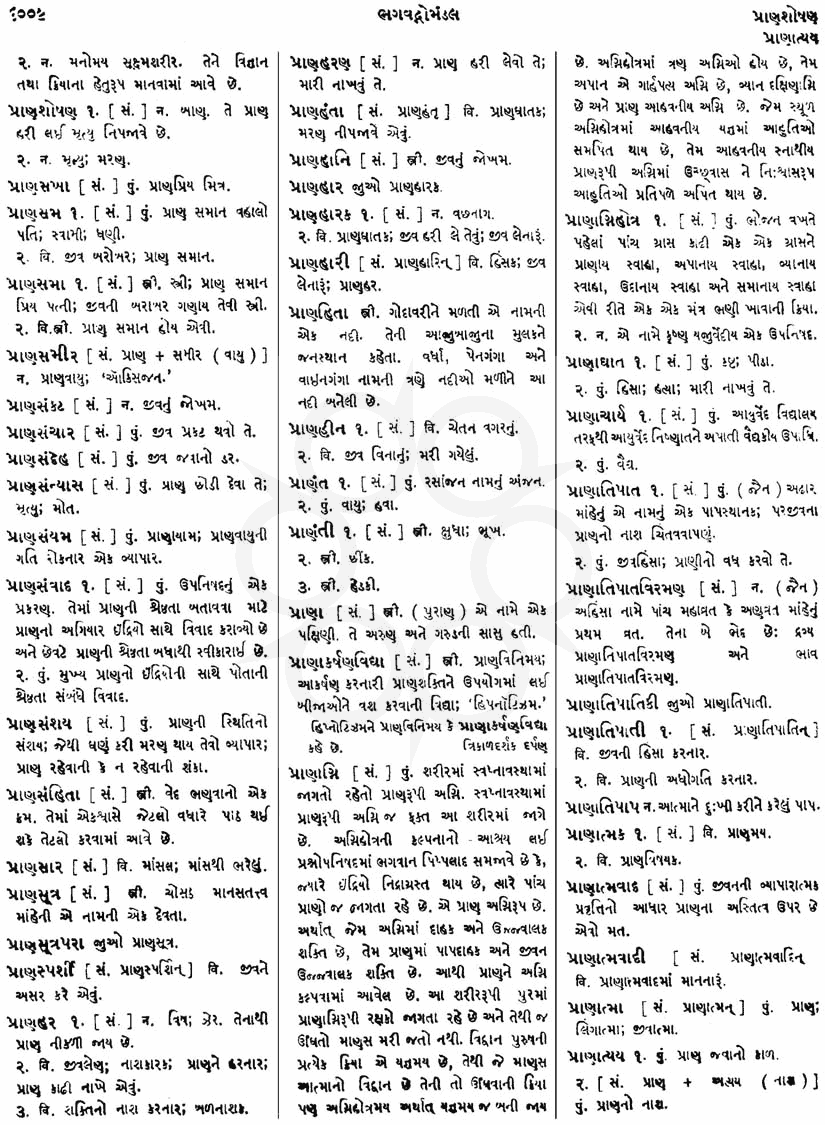 ૬૦૦૬
ભગવદ્ગોમંડલ
પ્રાણશોષણ
પ્રાણાત્યય
૨. ન. મનોમય સૂક્ષ્મશરીર. તેને વિજ્ઞાન
તથા ક્રિયાના હેતુરૂપ માનવામાં આવે છે.
પ્રાણશોષણ ૧. [ સં. ] ન. બાણ. તે પ્રાણ
હરી લઈ મૃત્યુ નિપજાવે છે.
૨. ન. મૃત્યુ; મરણ.
પ્રાણસખા [ સં. ] પું. પ્રાણપ્રિય મિત્ર.
પ્રાણસમ ૧. [ સં. ] પું. પ્રાણ સમાન વહાલો
પતિ; સ્વામી; ધણી.
૨. વિ. જીવ બરોબર; પ્રાણ સમાન.
પ્રાણસમા ૧. [ સં. ] સ્ત્રી. સ્ત્રી; પ્રાણ સમાન
પ્રિય પત્ની; જીવની બરાબર ગણાય તેવી સ્ત્રી.
૨. વિ.સ્ત્રી. પ્રાણ સમાન હોય એવી.
પ્રાણસમીર [ સં. પ્રાણ + સમીર ( વાયુ ) ]
ન. પ્રાણવાયુ; ‘ઑક્સિજન.’
પ્રાણસંકટ [ સં. ] ન. જીવનું જોખમ.
પ્રાણસંચાર [ સં. ] પું. જીવ પ્રકટ થવો તે.
પ્રાણસંદેહ [ સં. ] પું. જીવ જવાનો ડર.
પ્રાણસંન્યાસ [ સં. ] પું. પ્રાણ છોડી દેવા તે;
મૃત્યુ; મોત.
પ્રાણસંયમ [ સં. ] પું. પ્રાણાયામ; પ્રાણવાયુની
ગતિ રોકનાર એક વ્યાપાર.
પ્રાણસંવાદ ૧. [ સં. ] પું. ઉપનિષદનું એક
પ્રકરણ. તેમાં પ્રાણની શ્રેષ્ઠતા બતાવવા માટે
પ્રાણનો અગિયાર ઇંદ્રિયો સાથે વિવાદ કરાવ્યો છે
અને છેવટે પ્રાણની શ્રેષ્ઠતા બધાથી સ્વીકારાઈ છે.
૨. પું. મુખ્ય પ્રાણનો ઇંદ્રિયોની સાથે પોતાની
શ્રેષ્ઠતા સંબંધે વિવાદ.
પ્રાણસંશય [ સં. ] પું. પ્રાણની સ્થિતિનો
સંશય; જેથી ઘણું કરી મરણ થાય તેવો વ્યાપાર;
પ્રાણ રહેવાની કે ન રહેવાની શંકા.
પ્રાણસંહિતા [ સં. ] સ્ત્રી. વેદ ભણવાનો એક
ક્રમ. તેમાં એકશ્વાસે જેટલો વધારે પાઠ થઈ
શકે તેટલો કરવામાં આવે છે.
પ્રાણસાર [ સં. ] વિ. માંસલ; માંસથી ભરેલું.
પ્રાણસૂત્ર [ સં. ] સ્ત્રી. ચોસઠ માનસતત્ત્વ
માંહેની એ નામની એક દેવતા.
પ્રાણસૂત્રપરા જુઓ પ્રાણસૂત્ર.
પ્રાણસ્પર્શી [ સં. પ્રાણસ્પર્શિન્ ] વિ. જીવને
અસર કરે એવું.
પ્રાણહર ૧. [ સં. ] ન. વિષ; ઝેર. તેનાથી
પ્રાણ નીકળી જાય છે.
૨. વિ. જીવલેણ; નાશકારક; પ્રાણને હરનાર;
પ્રાણ કાઢી નાખે એવું.
૩. વિ. શક્તિનો નાશ કરનાર; બળનાશક.
પ્રાણહરણ [ સં. ] ન. પ્રાણ હરી લેવો તે;
મારી નાખવું તે.
પ્રાણહંતા [ સં. પ્રાણહંતૃ ] વિ. પ્રાણઘાતક;
મરણ નીપજાવે એવું.
પ્રાણહાનિ [ સં. ] સ્ત્રી. જીવનું જોખમ.
પ્રાણહાર જુઓ પ્રાણહારક.
પ્રાણહારક ૧. [ સં. ] ન. વછનાગ.
૨. વિ. પ્રાણઘાતક; જીવ હરી લે તેવું; જીવ લેનારૂં.
પ્રાણહારી [ સં. પ્રાણહારિન્ ] વિ. હિંસક; જીવ
લેનારૂં; પ્રાણહર.
પ્રાણહિતા સ્ત્રી. ગોદાવરીને મળતી એ નામની
એક નદી. તેની આજુબાજુના મુલકને
જનસ્થાન કહેતા. વર્ધા, પેનગંગા અને
વાઇનગંગા નામની ત્રણે નદીઓ મળીને આ
નદી બનેલી છે.
પ્રાણહીન ૧. [ સં. ] વિ. ચેતન વગરનું.
૨. વિ. જીવ વિનાનું; મરી ગયેલું.
પ્રાણંત ૧. [ સં. ] પું. રસાંજન નામનું અંજન.
૨. પું. વાયુ; હવા.
પ્રાણંતી ૧. [ સં. ] સ્ત્રી. ક્ષુધા; ભૂખ.
૨. સ્ત્રી. છીંક.
૩. સ્ત્રી. હેડકી.
પ્રાણા [ સં. ] સ્ત્રી. ( પુરાણ ) એ નામે એક
પક્ષિણી. તે અરુણ અને ગરુડની સાસુ હતી.
પ્રાણાકર્ષણવિદ્યા [ સં. ] સ્ત્રી. પ્રાણવિનિમય;
આકર્ષણ કરનારી પ્રાણશક્તિને ઉપયોગમાં લઈ
બીજાઓને વશ કરવાની વિદ્યા; ‘હિપનૉટિઝમ.’
હિપ્નોટિઝમને પ્રાણવિનિમય કે પ્રાણાકર્ષણવિદ્યા
કહે છે. ત્રિકાળદર્શક દર્પણ
પ્રાણાગ્નિ [ સં. ] પું. શરીરમાં સ્વપ્નાવસ્થામાં
જાગતો રહેતો પ્રાણરૂપી અગ્નિ. સ્વપ્નાવસ્થામાં
પ્રાણરૂપી અગ્નિ જ ફક્ત આ શરીરમાં જાગે
છે. અગ્નિહોત્રની કલ્પનાનો આશ્રય લઈ
પ્રશ્નોપનિષદમાં ભગવાન પિપ્પલાદ સમજાવે છે કે,
જ્યારે ઇંદ્રિયો નિદ્રાગ્રસ્ત થાય છે, ત્યારે પાંચ
પ્રાણો જ જાગતા રહે છે. એ પ્રાણ અગ્નિરૂપ છે.
અર્થાત્ જેમ અગ્નિમાં દાહક અને ઉજ્જ્વાલક
શક્તિ છે, તેમ પ્રાણમાં પાપદાહક અને જીવન
ઉજ્જ્વાલક શક્તિ છે. આથી પ્રાણને અગ્નિ
કલ્પવામાં આવેલ છે. આ શરીરરૂપી પુરમાં
પ્રાણાગ્નિરૂપી રક્ષકો જાગતા રહે છે અને તેથી જ
ઊંઘતો માણસ મરી જતો નથી. વિદ્વાન પુરુષની
પ્રત્યેક ક્રિયા એ યજ્ઞમય છે, તેથી જે માણસ
આત્માનો વિદ્વાન છે તેની તો ઊંઘવાની ક્રિયા
પણ અગ્નિહોત્રમય અર્થાત્ યજ્ઞમય જ બની જાય
છે. અગ્નિહોત્રમાં ત્રણ અગ્નિઓ હોય છે, તેમ
અપાન એ ગાર્હપત્ય અગ્નિ છે, વ્યાન દક્ષિણાગ્નિ
છે અને પ્રાણ આહવનીય અગ્નિ છે. જેમ સ્થૂળ
અગ્નિહોત્રમાં આહવનીય યજ્ઞમાં આહુતિઓ
સમર્પિત થાય છે, તેમ આહવનીય સ્નાથીય
પ્રાણરૂપી અગ્નિમાં ઉચ્છ્વાસ ને નિઃશ્વાસરૂપ
આહુતિઓ પ્રતિપળે અર્પિત થાય છે.
પ્રાણાગ્નિહોત્ર ૧. [ સં. ] પું. ભોજન વખતે
પહેલાં પાંચ ગ્રાસ કાઢી એક એક ગ્રાસને
પ્રાણાય સ્વાહા, અપાનાય સ્વાહા, વ્યાનાય
સ્વાહા, ઉદાનાય સ્વાહા અને સમાનાય સ્વાહા
એવી રીતે એક એક મંત્ર ભણી ખાવાની ક્રિયા.
૨. ન. એ નામે કૃષ્ણ યજુર્વેદીય એક ઉપનિષદ.
પ્રાણાઘાત ૧. [ સં. ] પું. કષ્ટ; પીડા.
૨. પું. હિંસા; હત્યા; મારી નાખવું તે.
પ્રાણાચાર્ય ૧. [ સં. ] પું. આયુર્વેદ વિદ્યાલય
તરફથી આયુર્વેદ નિષ્ણાતને અપાતી વૈદ્યકીય ઉપાધિ.
૨. પું. વૈદ્ય.
પ્રાણાતિપાત ૧. [ સં. ] પું. ( જૈન ) અઢાર
માંહેનું એ નામનું એક પાપસ્થાનક; પરજીવના
પ્રાણનો નાશ ચિતવવાપણું.
૨. પું. જીવહિંસા; પ્રાણીનો વધ કરવો તે.
પ્રાણાતિપાતવિરમણ [ સં. ] ન. ( જૈન )
અહિંસા નામે પાંચ મહાવ્રત કે અણુવ્રત માંહેનું
પ્રથમ વ્રત. તેના બે ભેદ છેઃ દ્રવ્ય
પ્રાણાનિપાતવિરમણ અને ભાવ
પ્રાણાતિપાતવિરમણ.
પ્રાણાતિપાતિકી જુઓ પ્રાણાતિપાતી.
પ્રાણાતિપાતી ૧. [ સં. પ્રાણાતિપાતિન્ ]
વિ. જીવની હિંસા કરનાર.
૨. વિ. પ્રાણની અધોગતિ કરનાર.
પ્રાણાતિપાપ ન. આત્માને દુઃખી કરીને કરેલું પાપ.
પ્રાણાત્મક ૧. [ સં. ] વિ. પ્રાણમય.
૨. વિ. પ્રાણવિષયક.
પ્રાણાત્મવાદ [ સં. ] પું. જીવનની વ્યાપારાત્મક
પ્રવૃત્તિનો આધાર પ્રાણના અસ્તિત્વ ઉપર છે
એવો મત.
પ્રાણાત્મવાદી [ સં. પ્રાણાત્મવાદિન્ ]
વિ. પ્રાણાત્મવાદમાં માનનારૂં.
પ્રાણાત્મા [ સં. પ્રાણાત્મન્ ] પું. પ્રાણ;
લિંગાત્મા; જીવાત્મા.
પ્રાણાત્યય ૧. પું. પ્રાણ જવાનો કાળ.
૨. [ સં. પ્રાણ + અત્યય ( નાશ ) ]
પું. પ્રાણનો નાશ.